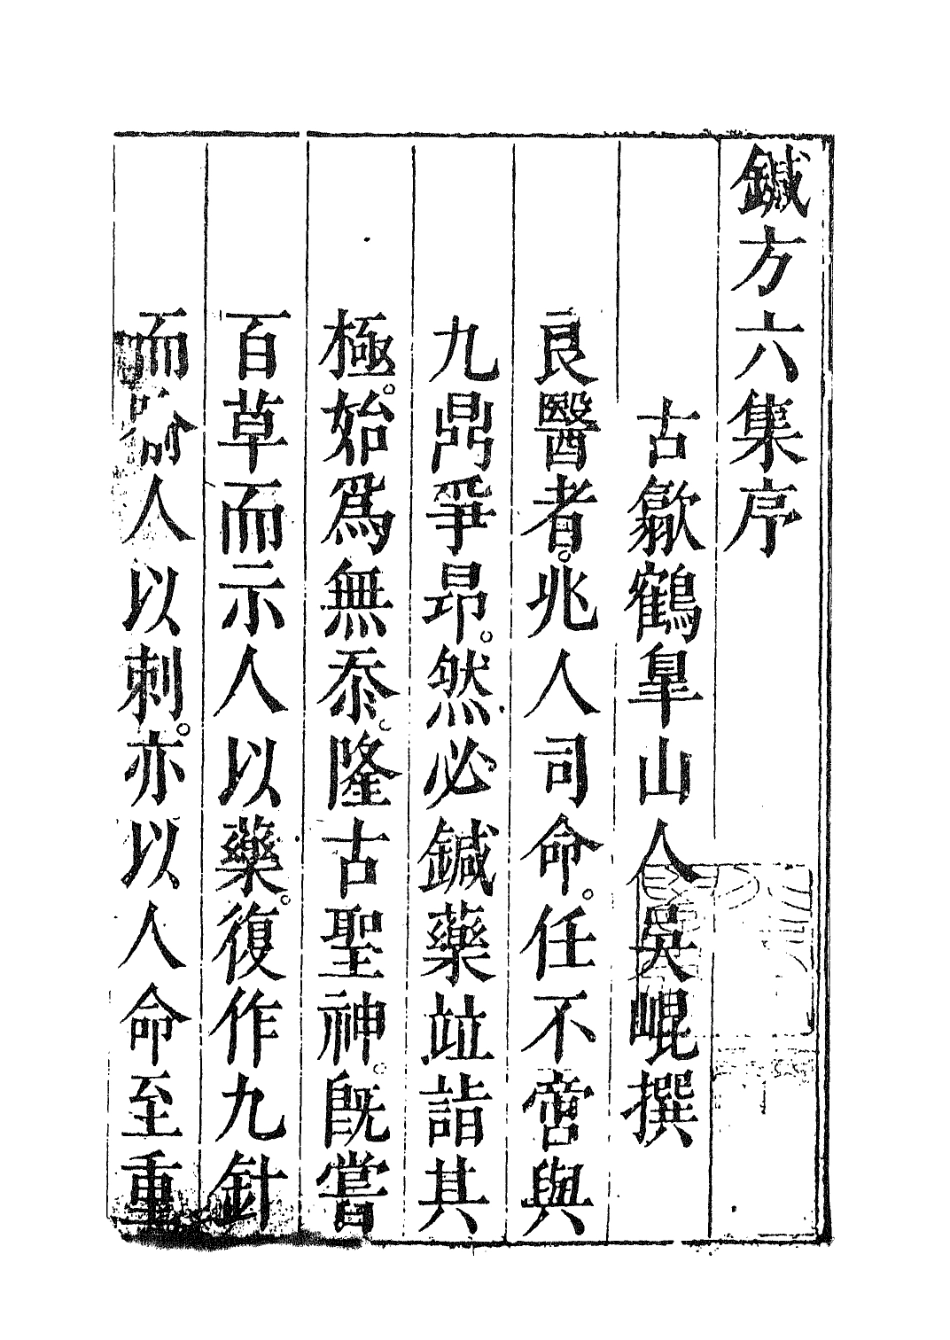 鍼方六集序
古歙鶴臯山人吳崐撰
良醫者。兆人司命。任不啻與
九鼎爭昂。然必鍼藥竝詣其
極。始爲無忝。隆古聖神。旣嘗
百草而示人以藥。復作九針
而喻人以刺。亦以人命至重